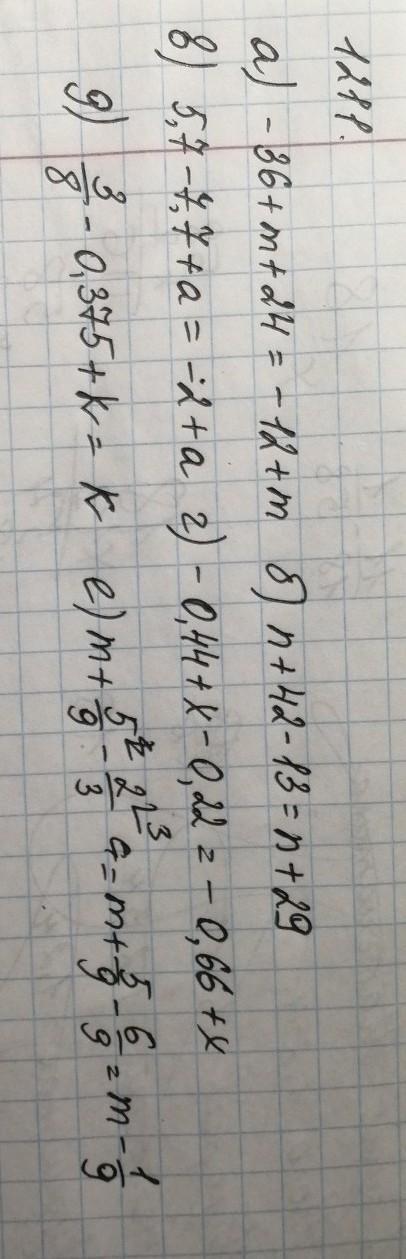 1288.
а) - 36 + m + 24 = - 12 + m б) n + 42 - 13 = n + 29
в) 5,7 - 7,7 + a = - 2 + a г) - 0,44 + x - 0,22 = - 0,66 + x
д) 3/8 - 0,375 + k = k е) m + 5/9 - 2/3 = m + 5/9 - 6/9 = m - 1/9